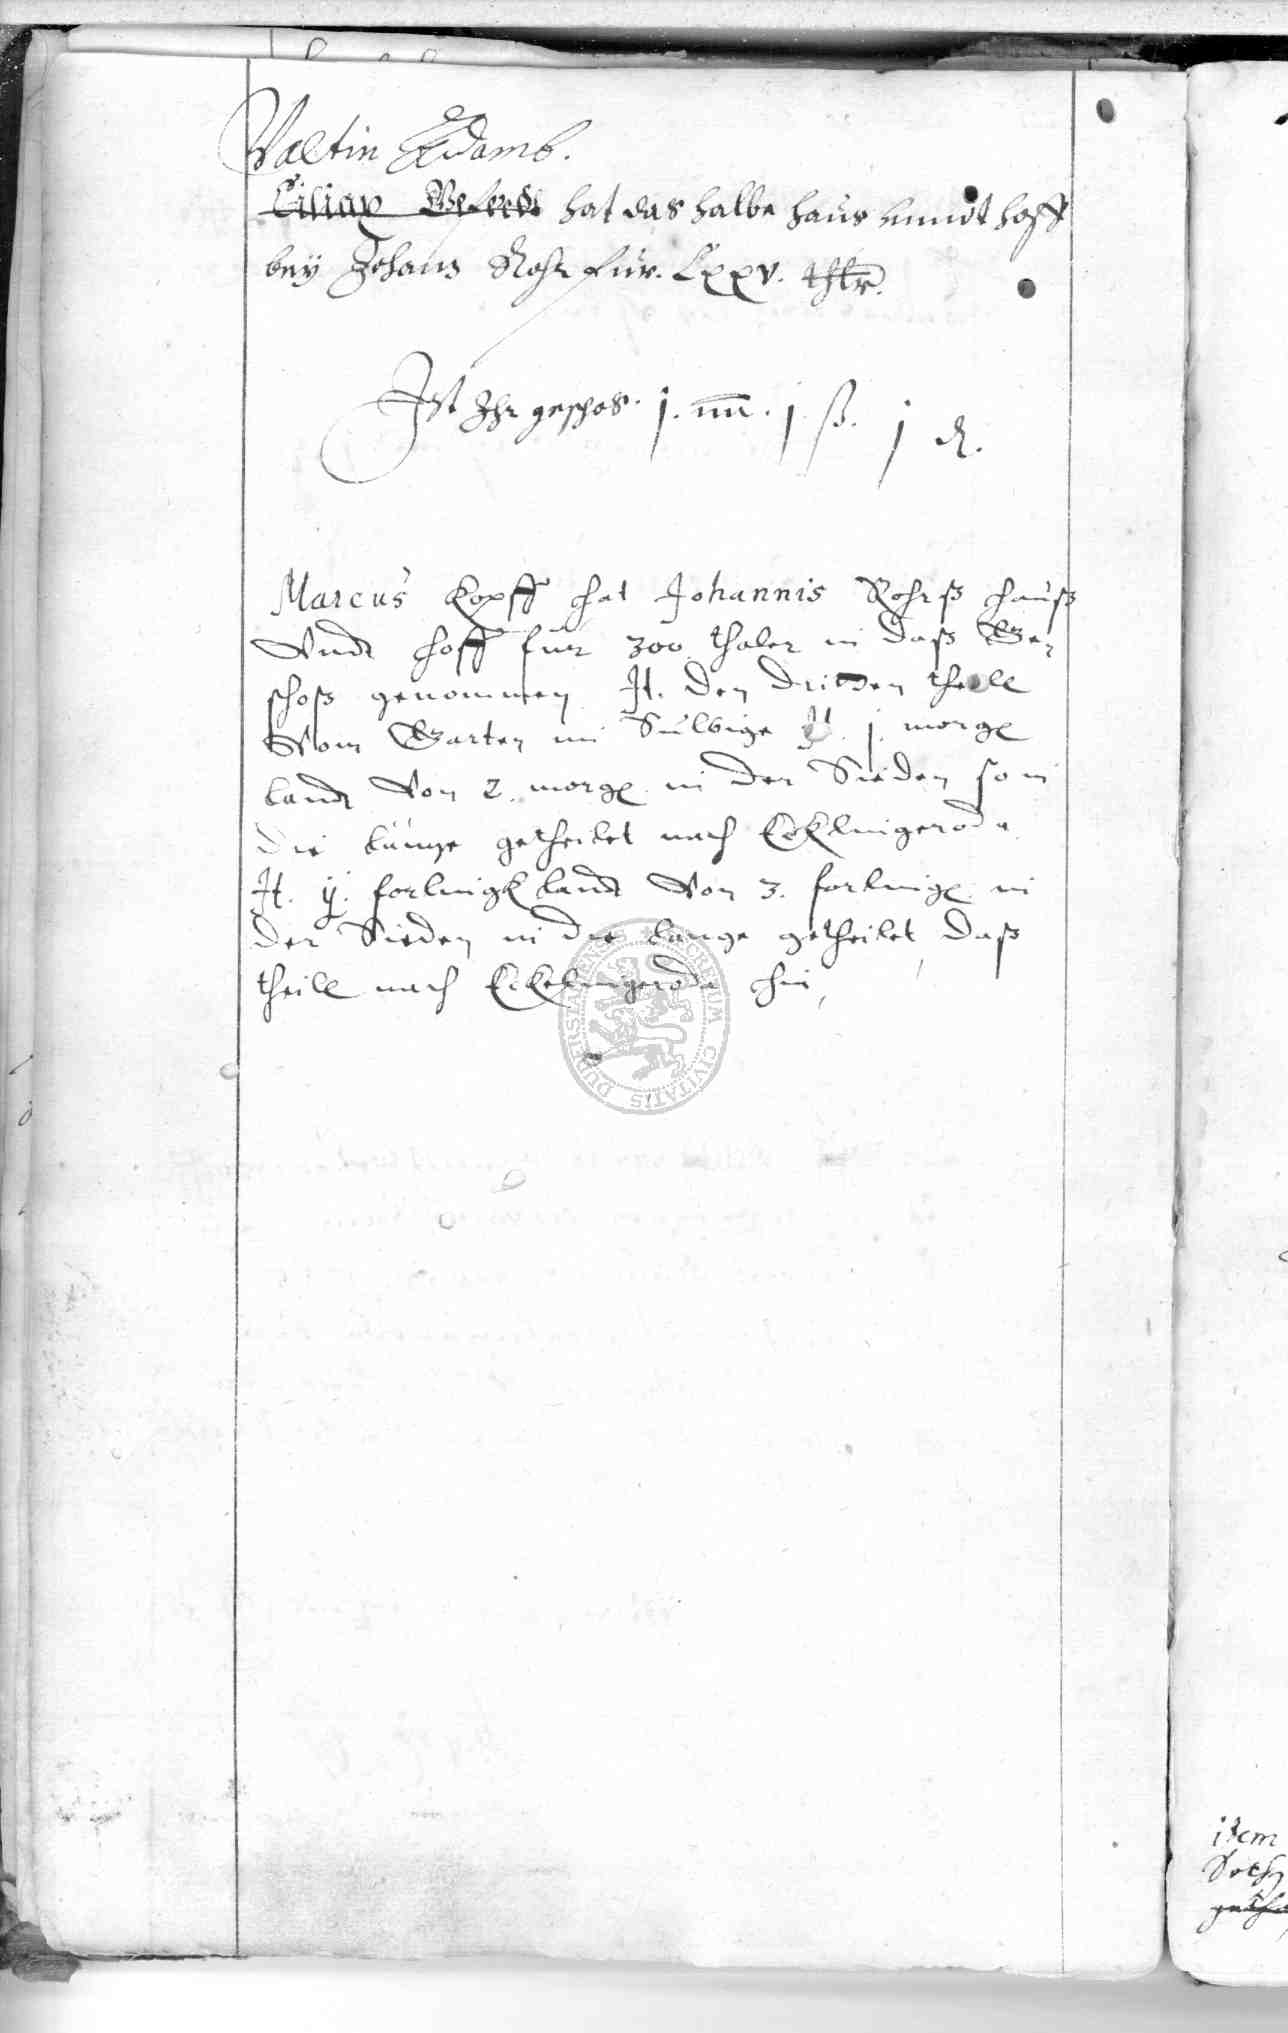 Valtin Adamb.
Ciliax hat das halbe haus unndt hoff
bey Johans Rohr fur. Lxxv. thlr.
Ist Ihr geschos. j. mr. j. ß. j d.
Marcus Kopff hat Johannis Rohrß hauß
Vndt hoff fur 300 thaler in daß Ge-
schoß genommen It. den dritten theill
Vom Garten im Sulbige It. j. morg
landt Von 2. morg. in der Sieden so in
die länge getheilet nach Eckelingeroda
It. ij. forlingk landt Von 3. forling. in
der Sieden in die lange getheilet, daß
theill nach Eckelingeroda hin,
SECRETUM CIVITATIS DUDERSTADENSIS
item